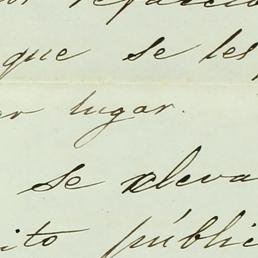 que se les
lugar.
se eleva
ito públic